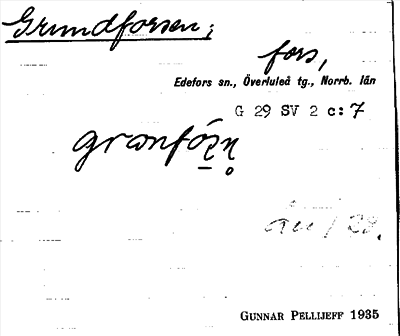 Grundforsen;
fors,
Edefors sn., Överluleå tg., Norrb. län
G 29 SV 2 c:7
GUNNAR PELLIJEFF 1935